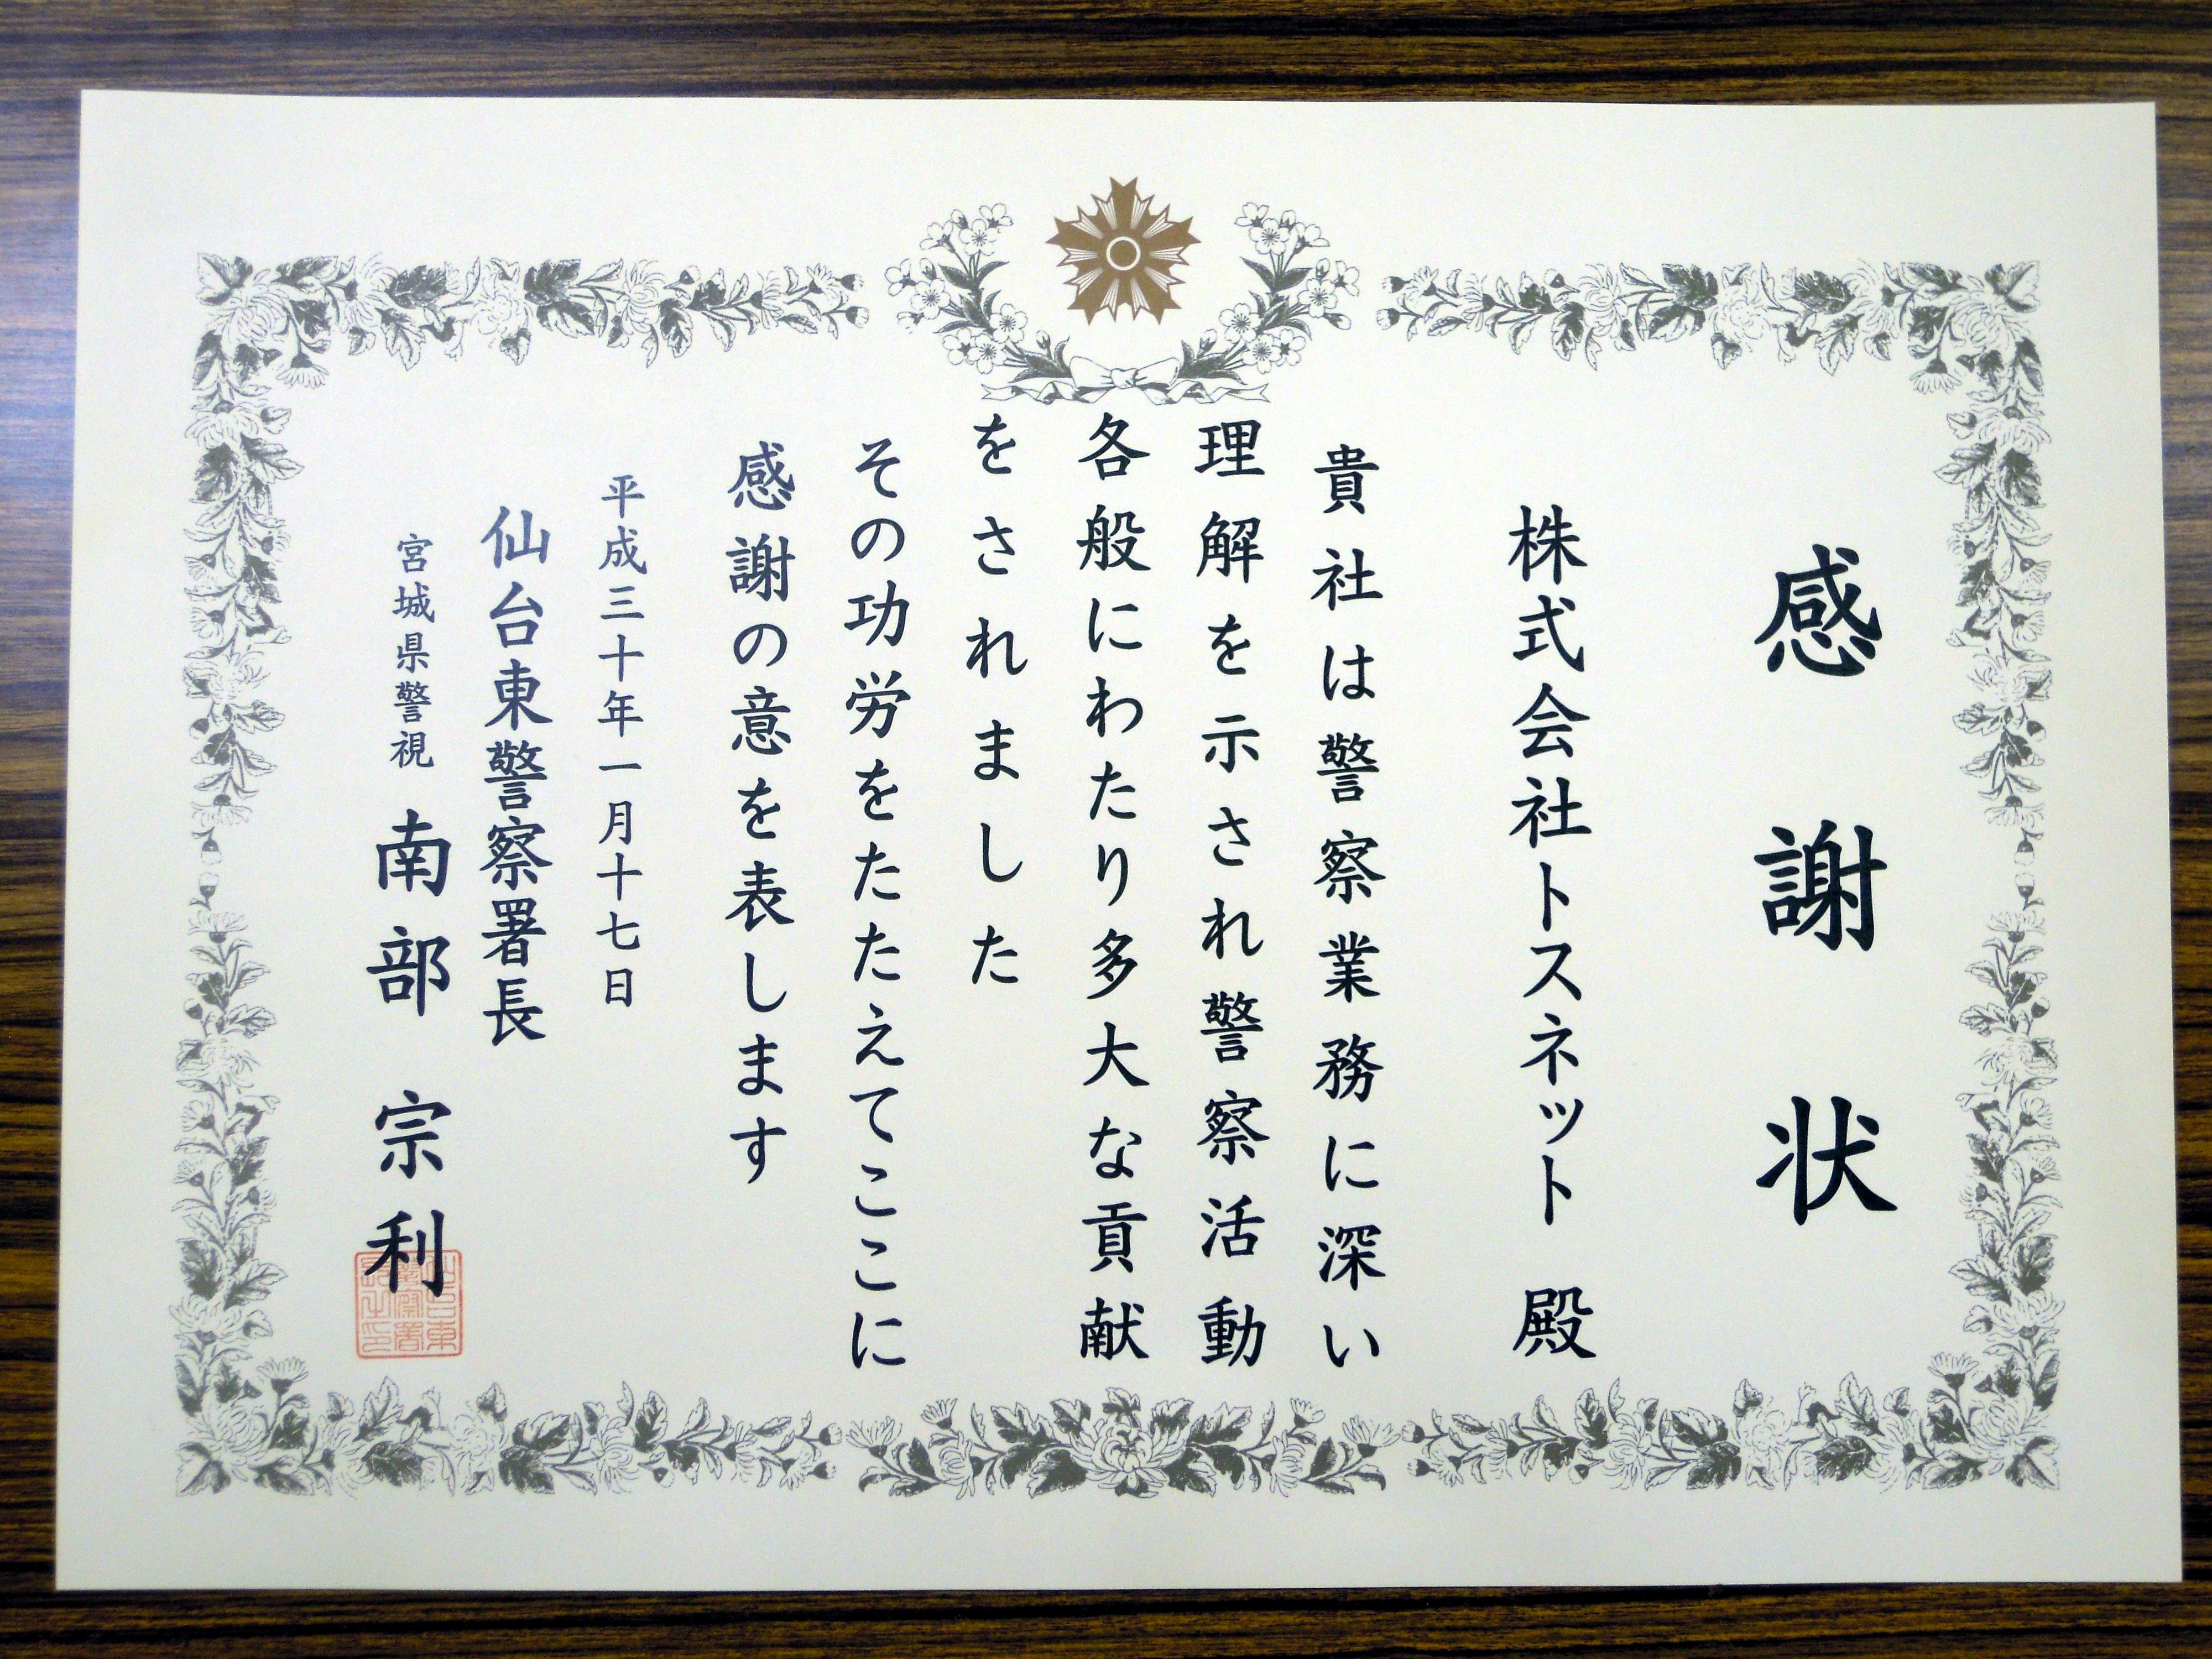 感謝状
株式会社トスネット 殿
貴社は警察業務に深い
理解を示され警察活動
各般にわたり多大な貢献
をされました
その功労をたたえてここに
感謝の意を表します
平成三十年一月十七日
仙台東警察署長
宮城県警視 南部宗利
仙台東
警察署
長之印